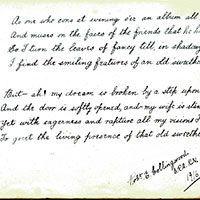 As one who cons at evening o'er an album all
And muses on the faces of the friends that he h
So I turn the leaves of fancy till, in shadow
I find the smiling features of an old sweethe
But — ah! my dream is broken by a step upon
And the door is softly opened, and my wife is stan
Yet with eagerness and rapture all my visions I
To greet the living presence of that old sweethe
Robt. G. Collingwood.
1916